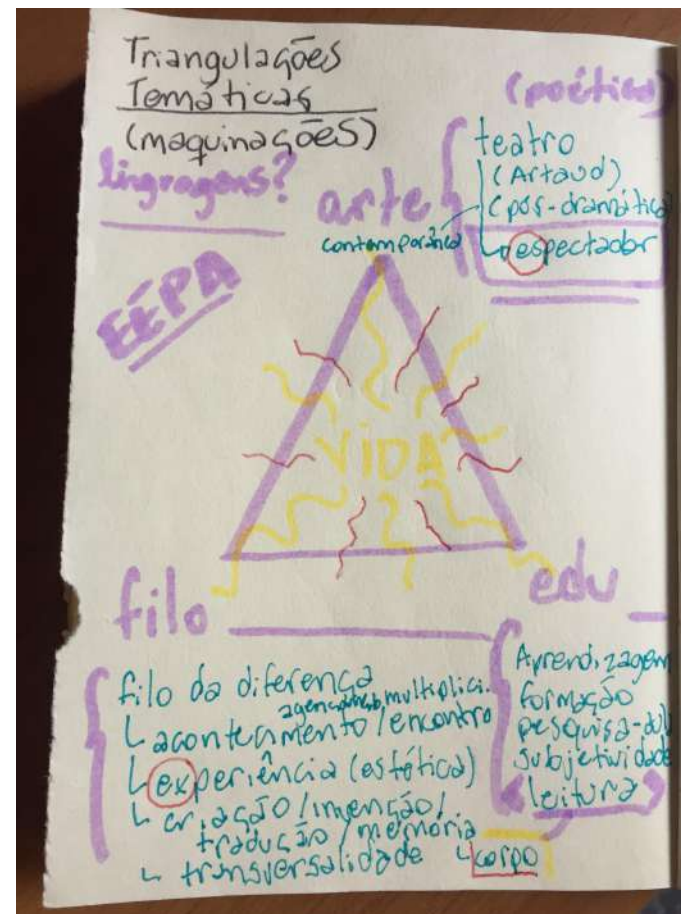 Triangulações
Temáticas
(maquinações)
lingragens?
(poética)
arte
teatro
(Artaud)
(pós-dramática)
contemporânea
espectador
EÉPA
VIDA
filo
edu
filo da diferença
agenciamento multiplici.
acontecimento/encontro
experiência (estética)
cr.ação/invenção/
tradução/memória
transversalidade
corpo
Aprendizagem
formação
subjetividade
leitura